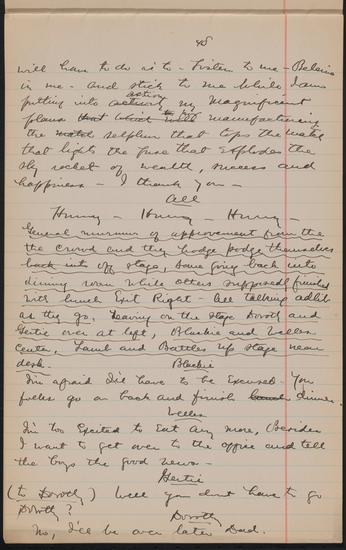 48
will have to do is to - Listen to me - Believe
in me - and stick to me while I am
action
putting into activity my magnificent
plans that what will manufacturing
the match sulphur that tips the match
that lights the fuse that explodes the
sky rocket of wealth, success and
happiness - I thank you -
All
Hurray - Hurray - Hurray -
General murmur of approvement from the
the crowd and they hodge podge themselves
back into off stage, some going back into
dining room while others supposedly finished
with lunch Exit Right - All talking adlib
as they go. Leaving on the stage Doroty and
Gertie over at left, Blackie and
center, Lamb and Battles up stage near
desk.
Blackie
I'm afraid I'll have to be Excused - You
go on back and finish lunch dinner.
I'm too Excited to Eat any more, Besides
I want to get over to the office and tell
the boys the good news -
Gertie
(to Doroty) Well you dont have to go
Doroty?
Doroty
No, I'll be over later Dad.